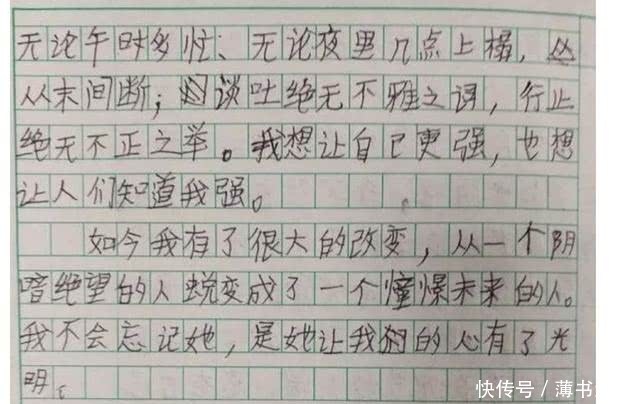 无论午时多忙、无论夜里几点上榻,
从末间断;谈吐绝无不雅之词,行止
绝无不正之举。我想让自己更强,也想
让人们知道我强。
如今我有了很大的改变,从一个阴
暗绝望的人蜕变成了一个憧憬未来的人。
我不会忘记她,是她让我的心有了光
明。
快传号/薄书